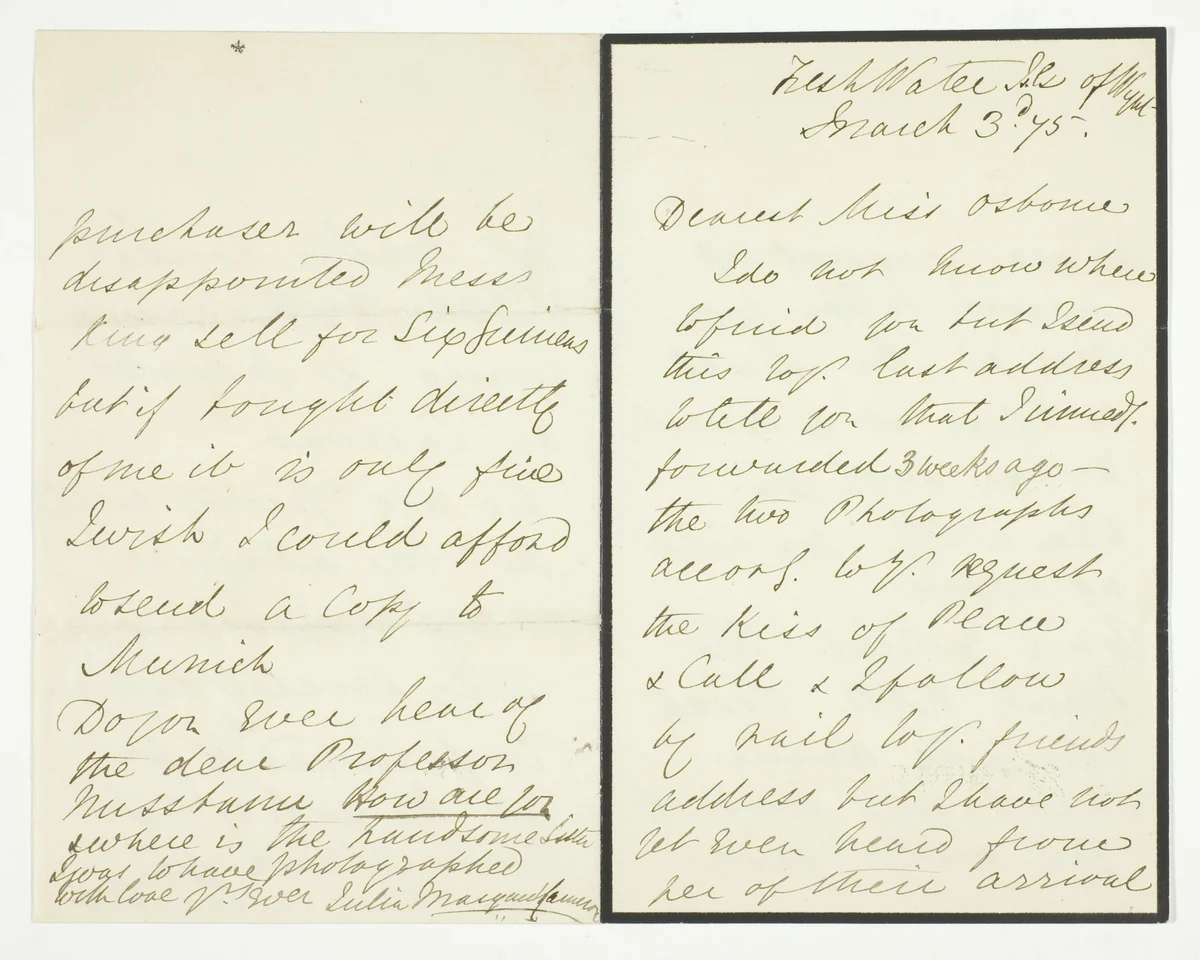 Fresh Water Isle of Wight
March 3d. 75.
Dearest Miss Osborne
I do not know where
to find you but I send
this to yr. last address
to tell you that I immedy.
forwarded 3 weeks ago —
the two Photographs
accorg. to yr. request
the Kiss of Peace
& Call & I follow
by rail to yr. friends
address but I have not
yet even heard from
her of their arrival
purchaser will be
disappointed Messrs
King sell for Six Guineas
but if bought directly
of me it is only five
I wish I could afford
to send a Copy to
Munich
Do you Ever hear of
the dear Professor
Nussbaum How are you
& where is the handsome Sister
I was to have photographed
with love yrs. Ever Julia Margaret Cameron